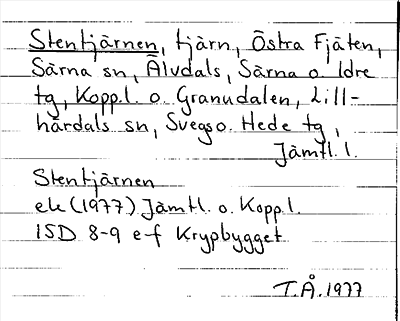 Stentjärnen, tjärn, Östra Fjäten,
Särna sn, Älvdals, Särna o. Idre
tg, Koppl. o. Granudalen, Lill-
härdals sn, Svegs o. Hede tg,
Jämtl. l.
Stentjärnen
ek (1977) Jämtl. o. Koppl.
15D 8-9 e-f Krypbygget
T.Å. 1977